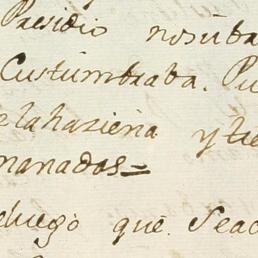 Presidio nosuba
Custumbraba. Pu
elahaziena y tie
manados=
luego que seac